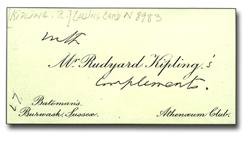 KIPLING. R. / CALLING CARD N 8983
with
Mr. Rudyard Kipling's
Compliments.
Bateman's
Burwash, Sussex.
Athenæum Club.